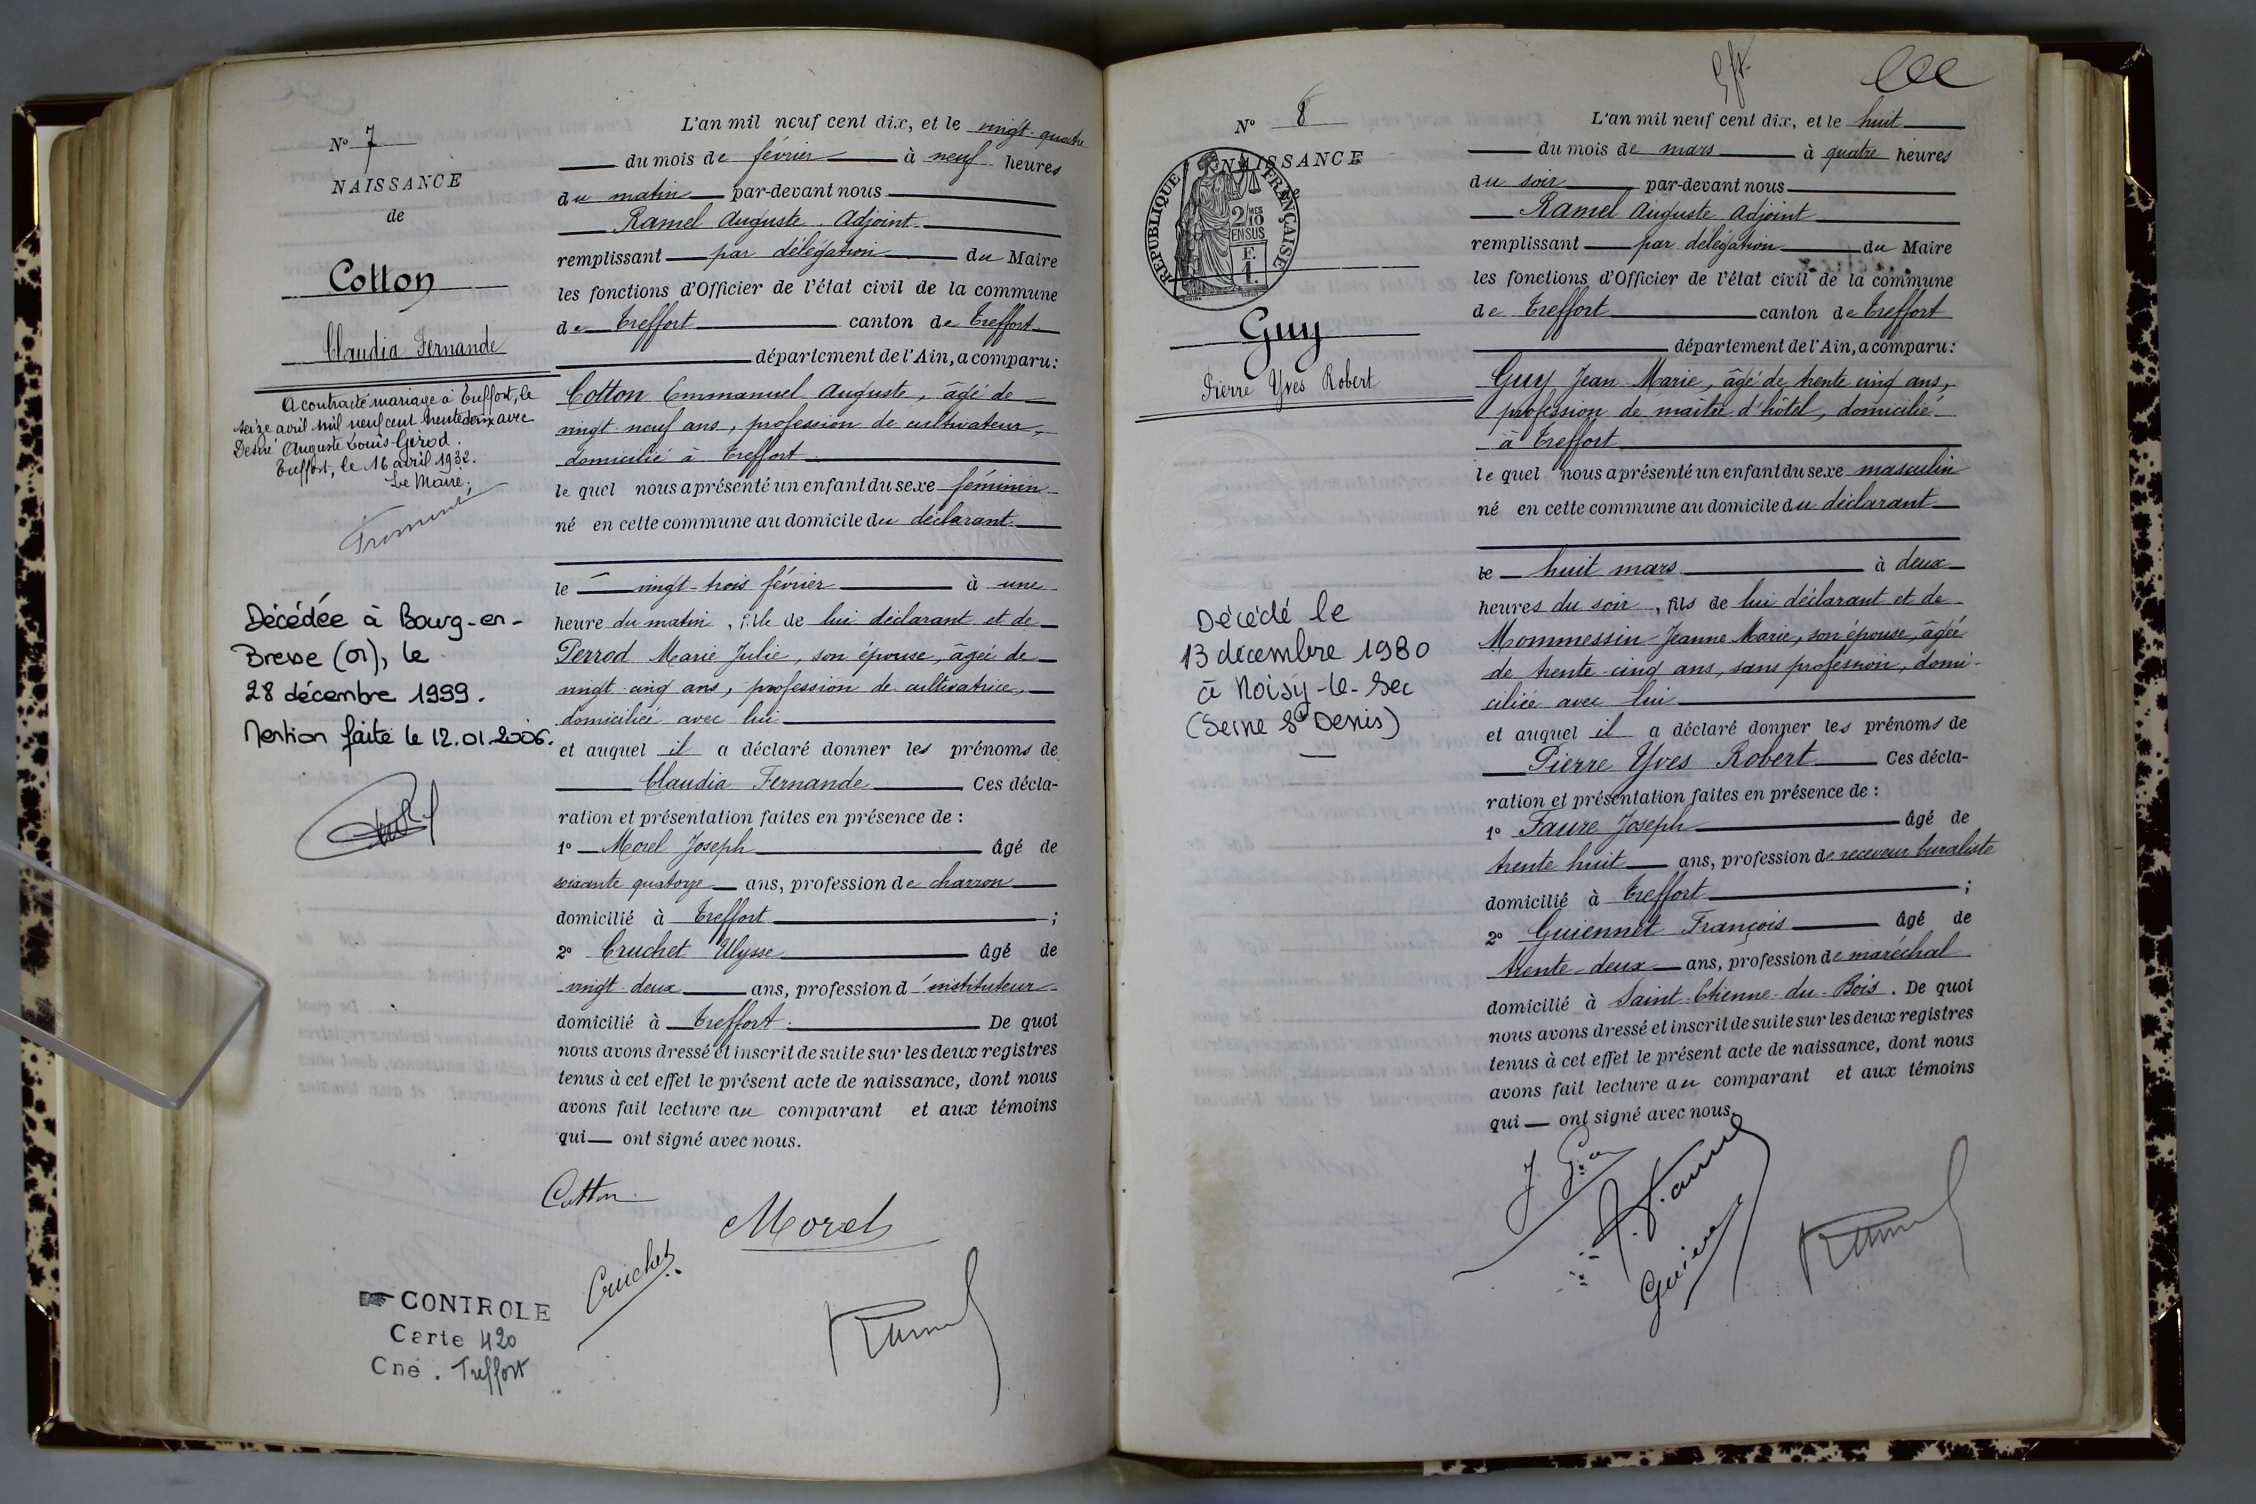 N° 7
NAISSANCE
de
Cotton
Claudia Fernande
A contracté mariage à Treffort, le
seize avril mil neuf cent trente deux avec
Désiré Auguste Louis Gérod.
Treffort, le 16 avril 1932.
Le Maire,
Décédée à Bourg-en-
Bresse (01), le
28 décembre 1999.
Mention faite le 12.01.2006.
CONTROLE
Carte 420
Cne. Treffort
L'an mil neuf cent dix, et le vingt-quatre
du mois de février à neuf heures
du matin par-devant nous
Ramel Auguste. Adjoint.
remplissant par délégation du Maire
les fonctions d'Officier de l'état civil de la commune
de Treffort canton de Treffort
département de l'Ain, a comparu:
Cotton Emmanuel Auguste, âgé de
vingt-neuf ans, profession de cultivateur,
domicilié à Treffort
le quel nous a présenté un enfant du sexe féminin
né en cette commune au domicile du déclarant
le vingt-trois février à une
heure du matin, fille de lui déclarant et de
Perrod Marie Julie, son épouse, âgée de
vingt-cinq ans, profession de cultivatrice,
domiciliée avec lui
et auquel il a déclaré donner les prénoms de
Claudia Fernande Ces décla-
ration et présentation faites en présence de :
1° Morel Joseph âgé de
soixante quatorze ans, profession de charron
domicilié à Treffort ;
2° Cruchet Ulysse âgé de
vingt-deux ans, profession d'instituteur
domicilié à Treffort. De quoi
nous avons dressé et inscrit de suite sur les deux registres
tenus à cet effet le présent acte de naissance, dont nous
avons fait lecture au comparant et aux témoins
qui ont signé avec nous.
Cotton
Morel
Cruchet
Ramel
N° 8
NAISSANCE
RÉPUBLIQUE FRANÇAISE
2/10 MES
EN SUS
F.
1.
Guy
Pierre Yves Robert
Décédé le
13 décembre 1980
à Noisy-le-Sec
(Seine St Denis)
L'an mil neuf cent dix, et le huit
du mois de mars à quatre heures
du soir par-devant nous
Ramel Auguste Adjoint
remplissant par délégation du Maire
les fonctions d'Officier de l'état civil de la commune
de Treffort canton de Treffort
département de l'Ain, a comparu:
Guy Jean-Marie, âgé de trente cinq ans,
profession de maître d'hôtel, domicilié
à Treffort
le quel nous a présenté un enfant du sexe masculin
né en cette commune au domicile du déclarant
le huit mars à deux
heures du soir, fils de lui déclarant et de
Mommessin Jeanne Marie, son épouse, âgée
de trente-cinq ans, sans profession, domi-
ciliée avec lui
et auquel il a déclaré donner les prénoms de
Pierre Yves Robert Ces décla-
ration et présentation faites en présence de :
1° Faure Joseph âgé de
trente huit ans, profession de receveur buraliste
domicilié à Treffort ;
2° Guiennet François âgé de
trente-deux ans, profession de maréchal
domicilié à Saint-Etienne-du-Bois. De quoi
nous avons dressé et inscrit de suite sur les deux registres
tenus à cet effet le présent acte de naissance, dont nous
avons fait lecture au comparant et aux témoins
qui ont signé avec nous.
J Guy
J. Faure
Ramel